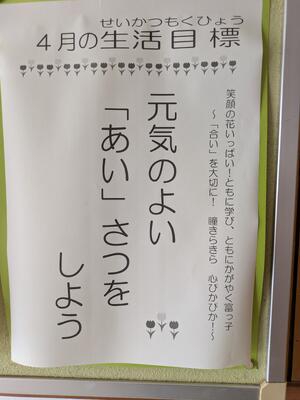 せいかつもくひょう
4月の生活目標
笑顔の花いっぱい！ともに学び、ともにかがやく富っ子
～「合い」を大切に！　瞳きらきら　心ぴかぴか！～
元気のよい
「あい」さつを
しよう